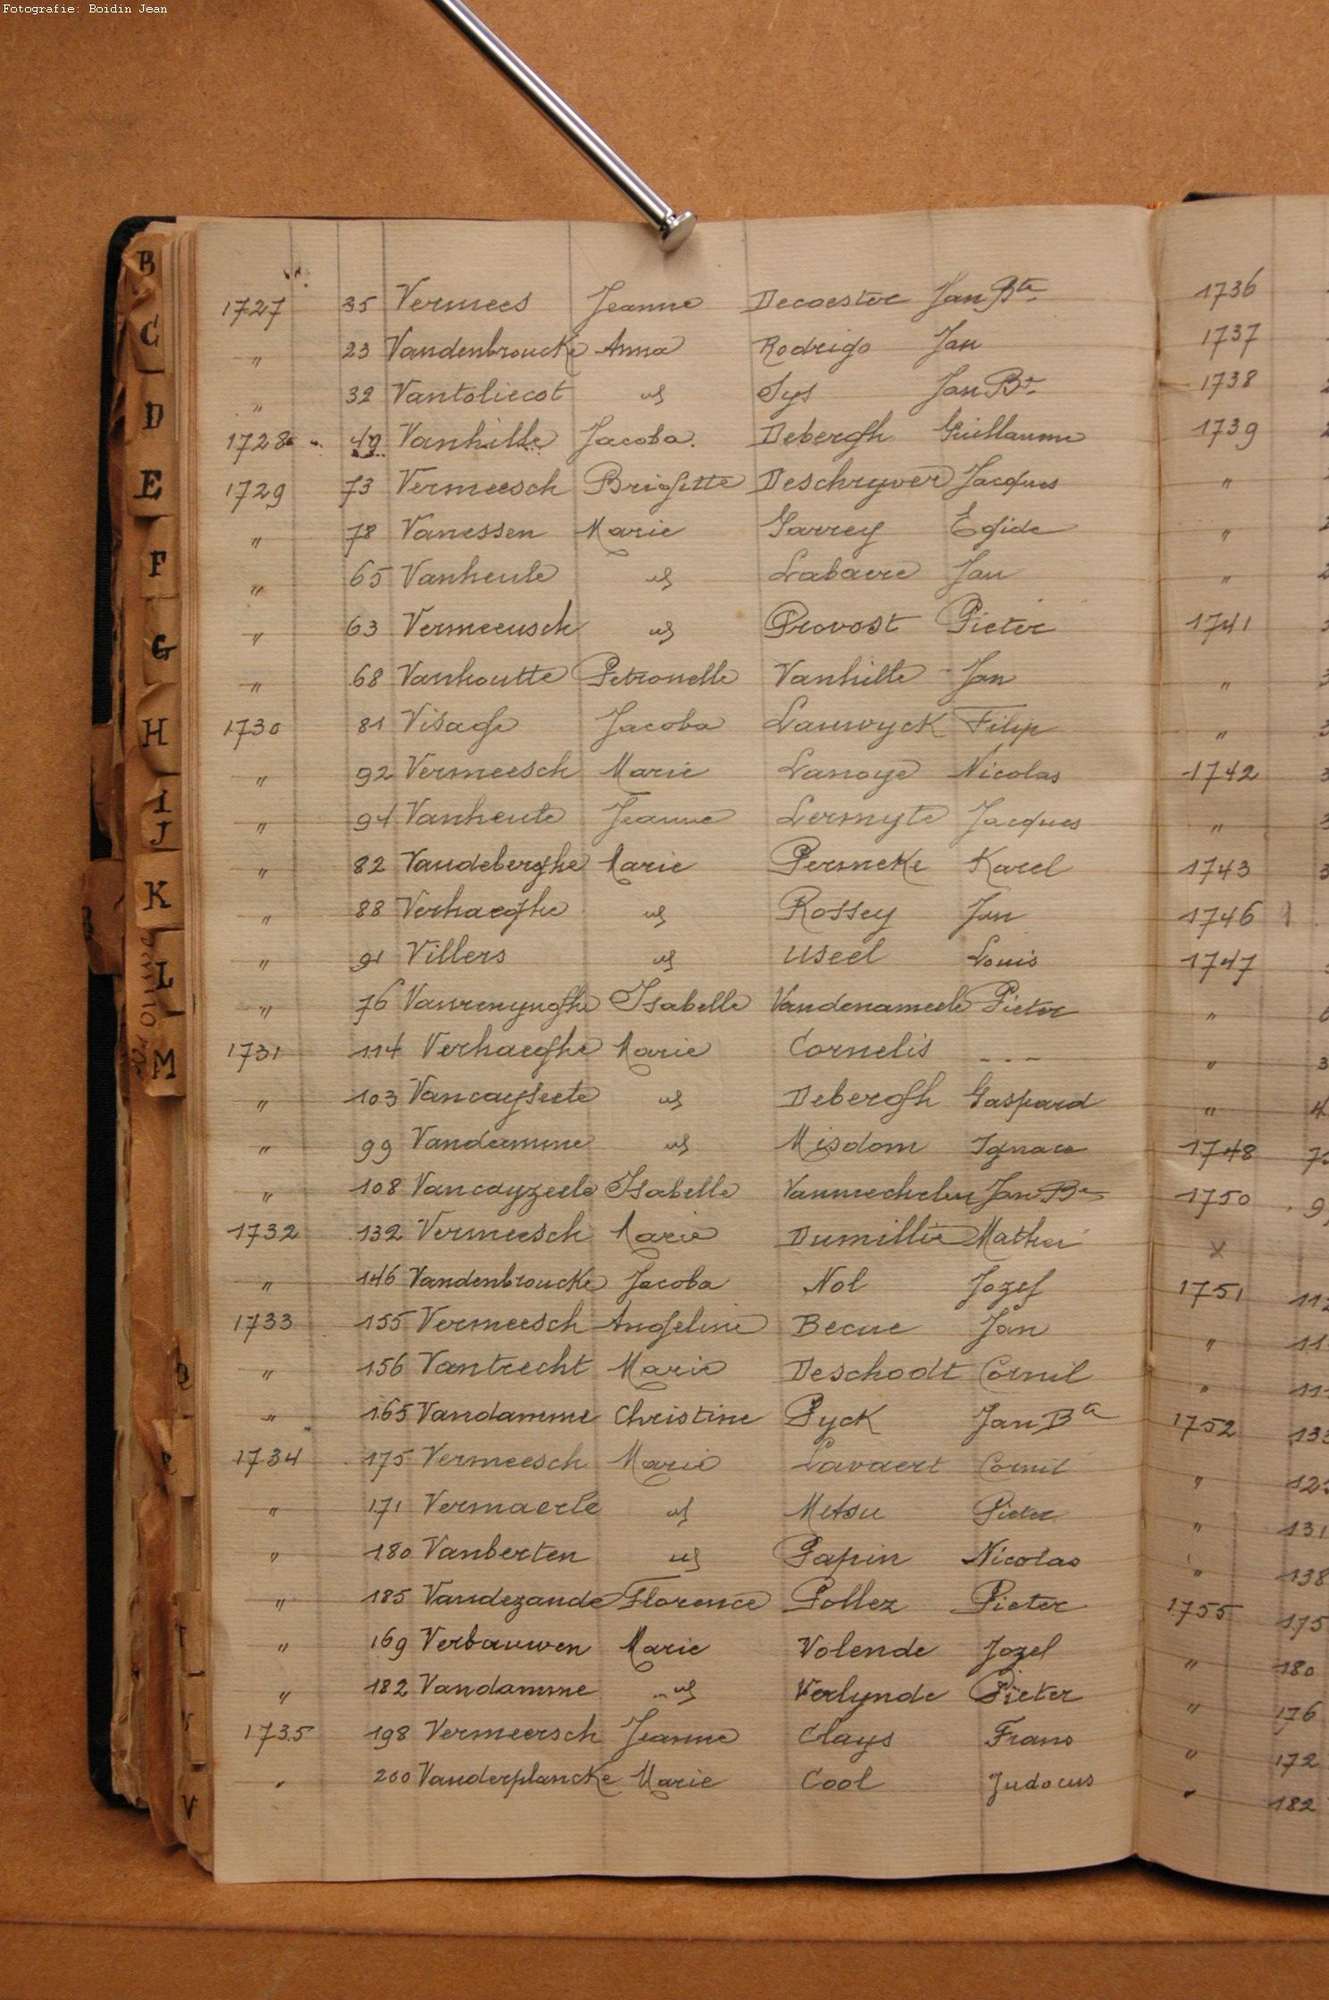 Fotografie: Boidin Jean
B
C
D
E
F
G
H
I
J
K
L
M
V
1727 35 Vermees Jeanne Decoester Jan Bte
" 23 Vandenbroucke Anna Rodrigo Jan
" 32 Vantoliecot id Sys Jan Bt
1728 49 Vanhille Jacoba Debergh Guillaume
1729 73 Vermeesch Brigitte Deschryver Jacques
" 78 Vanessen Marie Garrey Egide
" 65 Vanheule id Labaere Jan
" 63 Vermeeusch id Provost Pieter
" 68 Vanhoutte Petronelle Vanhille Jan
1730 81 Visage Jacoba Lauwyck Filip
" 92 Vermeesch Marie Lanoye Nicolas
" 94 Vanheule Jeanne Lermyte Jacques
" 82 Vandeberghe Marie Permeke Karel
" 88 Verhaeghe id Rossey Jan
" 91 Villers id Useel Louis
" 76 Vanrenynghe Isabelle Vandenameele Pieter
1731 114 Verhaeghe Marie Cornelis - - -
" 103 Vancayseele id Debergh Gaspard
" 99 Vandamme id Misdom Ignace
" 108 Vancayzeele Isabelle Vanmechelen Jan Bte
1732 132 Vermeesch Marie Dumillie Mathei
" 146 Vandenbroucke Jacoba Nol Jozef
1733 155 Vermeesch Angeline Becue Jan
" 156 Vantrecht Marie Deschodt Cornil
" 165 Vandamme Christine Pyck Jan Ba
1734 175 Vermeesch Marie Lavaert Cornil
" 171 Vermaerle id Metsu Pieter
" 180 Vanberten id Papin Nicolas
" 185 Vandezande Florence Pollez Pieter
" 169 Verbauwen Marie Volende Jozef
" 182 Vandamme id Verlynde Pieter
1735 198 Vermeersch Jeanne Clays Frans
" 200 Vanderplancke Marie Cool Judocus
1736
1737
1738
1739
"
"
"
1741
"
"
1742
"
1743
1746
1747
"
"
"
1748
1750
x
1751
"
"
1752
"
"
" 138
1755 175
" 180
" 176
" 172
" 182